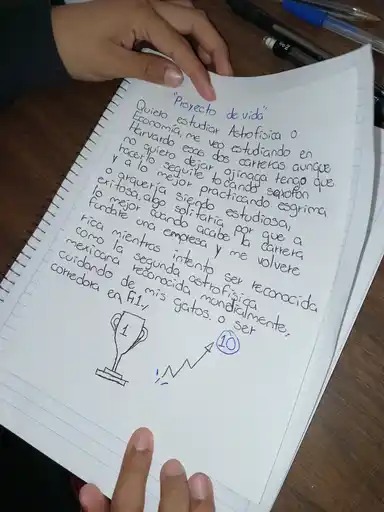 "Proyecto de vida"
Quiero estudiar Astrofísica o
Economía, me veo estudiando en
Harvard esas dos carreras aunque
no quiero dejar ojinaga tengo que
hacerlo seguire tocando saxofón
y a lo mejor practicando esgrima
o arquería siendo estudiosa,
exitosa, algo solitaria por que a
lo mejor cuando acabe la carrera
fundare una empresa y me volvere
rica mientras intento ser reconocida
como la segunda astrofísica
mexicana reconocida mundialmente,
cuidando de mis gatos o ser
corredora en F1,
1
10